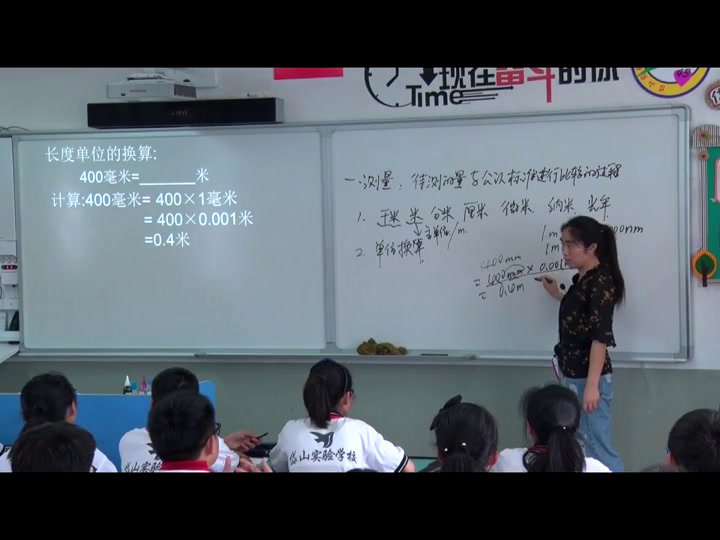 现在奋斗的你
Time
长度单位的换算:
400毫米=______米
计算:400毫米= 400×1毫米
= 400×0.001米
=0.4米
一.测量：待测的量与公认标准进行比较的过程
1. 千米 米 分米 厘米 微米 纳米 光年
主单位/m.
2. 单位换算
1m
nm
1m
400mm
= 400mm × 0.001
= 0.4m
岱山实验学校